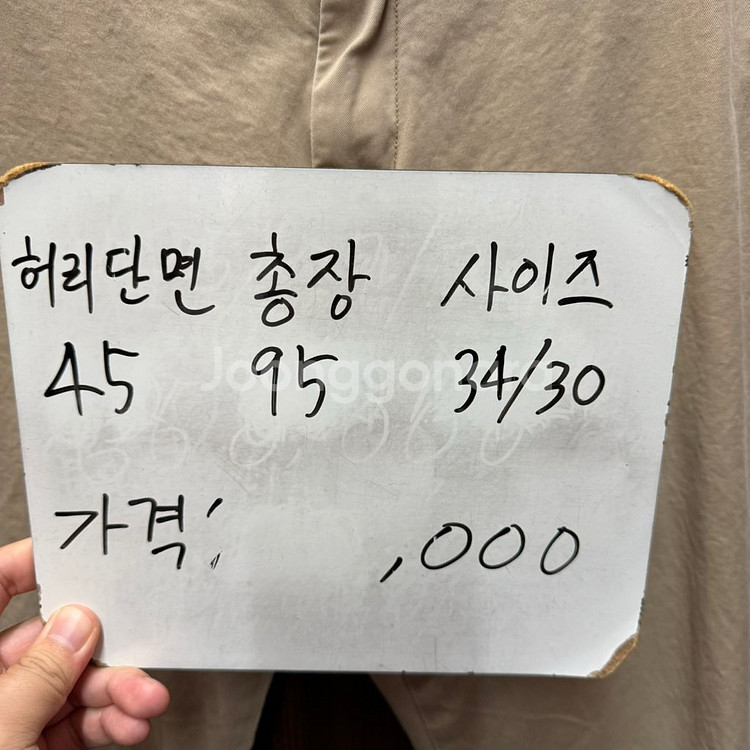 허리단면 총장 사이즈
45 95 34/30
가격: ,000